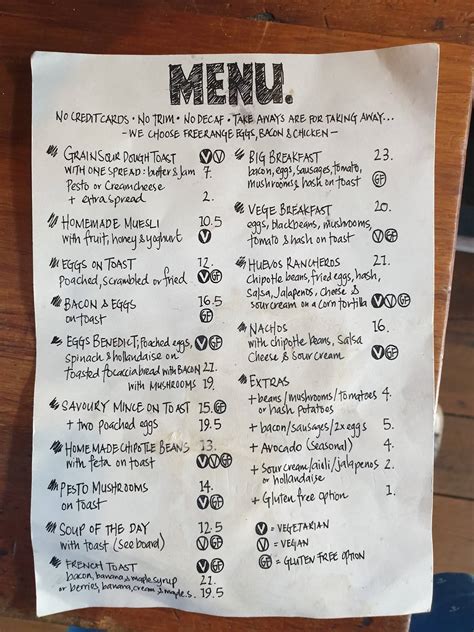 MENU.
NO CREDIT CARDS · NO TRIM · NO DECAF · TAKE AWAYS ARE FOR TAKING AWAY...
- WE CHOOSE FREERANGE EGGS, BACON & CHICKEN -
GRAIN SOUR DOUGH TOAST V V
WITH ONE SPREAD: butter & jam 7.
Pesto or Creamcheese
+ extra spread 2.
HOMEMADE MUESLI 10.5
with fruit, honey & yoghurt V
EGGS ON TOAST 12.
Poached, scrambled or fried V GF
BACON & EGGS 16.5
on toast GF
EGGS BENEDICT, Poached eggs, V GF
spinach & hollandaise on
toasted focaccia bread WITH BACON 21.
WITH MUSHROOMS 19.
SAVOURY MINCE ON TOAST 15. GF
+ two poached eggs 19.5
HOMEMADE CHIPOTLE BEANS 13.
with feta on toast V V GF
PESTO MUSHROOMS 14.
on toast V GF
SOUP OF THE DAY 12.5
with toast (see board) V GF
FRENCH TOAST
bacon, banana & maple syrup 21.
or berries, banana, cream & maple s. 19.5
BIG BREAKFAST 23.
bacon, eggs, sausages, tomato,
mushrooms & hash on toast GF
VEGE BREAKFAST 20.
eggs, blackbeans, mushrooms,
tomato & hash on toast V GF
HUEVOS RANCHEROS 21.
chipotle beans, fried eggs, hash,
Salsa, Jalapenos, cheese &
sour cream on a corn tortilla V V GF
NACHOS 16.
with chipotle beans, Salsa
Cheese & Sour cream V V GF
EXTRAS
+ beans/mushrooms/tomatoes 4.
or hash potatoes
+ bacon/sausages/2x eggs 5.
+ Avocado (seasonal) 4.
+ Sour cream/aioli/jalapenos 2.
or hollandaise
+ Gluten free option 1.
V = VEGETARIAN
V = VEGAN
GF = GLUTEN FREE OPTION